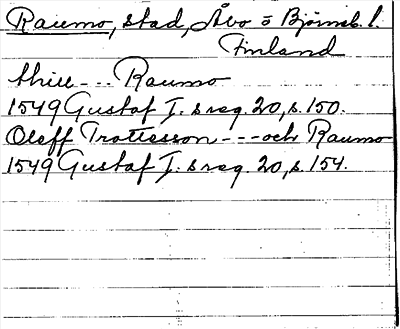 Raumo, stad, Åbo o Björneb. l.
Finland
thill --- Raumo
1549 Gustaf I:s reg. 20, s. 150.
Oleff Trottesson --- och Raumo
1549 Gustaf I:s reg. 20, s. 154.